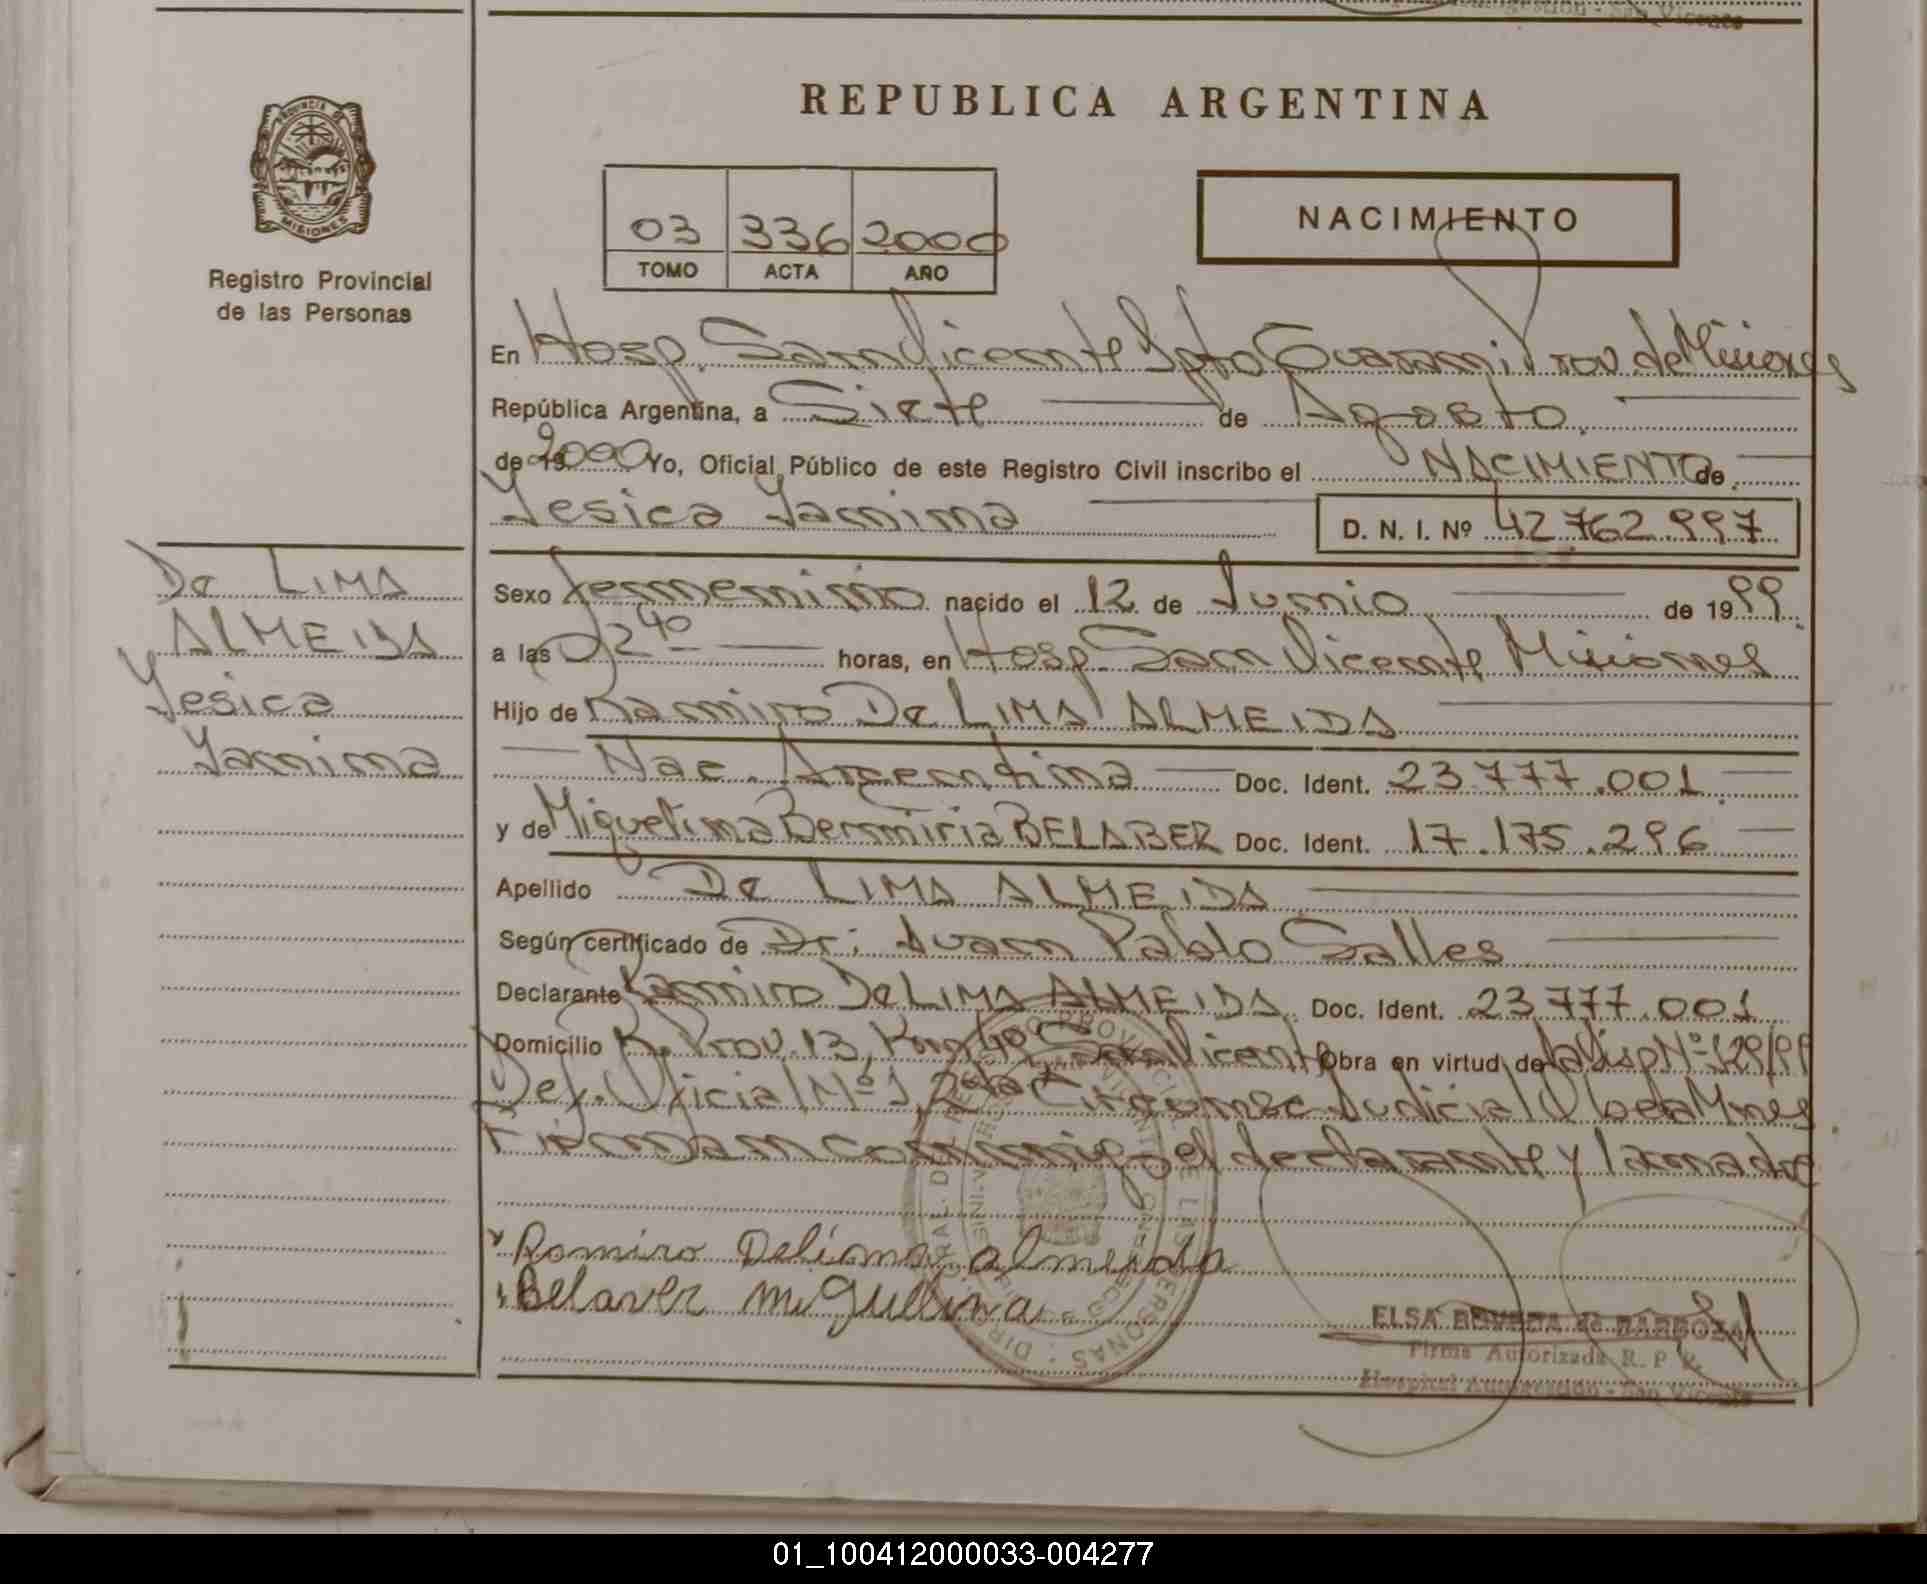 REPUBLICA ARGENTINA
PROVINCIA DE
MISIONES
Registro Provincial
de las Personas
03 336 2000
TOMO ACTA AÑO
NACIMIENTO
En Hosp. San Vicente Dpto Guarani Prov de Misiones
República Argentina, a Siete de Agosto
de 19 2000 Yo, Oficial Público de este Registro Civil inscribo el NACIMIENTO de
Yesica Yamima
D. N. I. Nº 42.762.997
De LIMA
ALMEIDA
Yesica
Yamima
Sexo femenino nacido el 12 de Junio de 1999
a las 02 40 horas, en Hosp. San Vicente Misiones
Hijo de Ramiro De LIMA ALMEIDA
Nac. Argentina Doc. Ident. 23.777.001
y de Miguelina Bermiria BELABER Doc. Ident. 17.175.296
Apellido De LIMA ALMEIDA
Según certificado de Dr: Juan Pablo Salles
Declarante Ramiro De LIMA ALMEIDA Doc. Ident. 23.777.001
Domicilio R. Prov. 13, Km San Vicente Obra en virtud de Nº 129/99
Def. Oficial Nº 1, 2da Circonsc Judicial Obera Mnes
Firman conmigo el declarante y la madre
Ramiro Delima almeida
Belaver miguelina
ELSA ROVEDA de BARBOZA
Firma Autorizada R. P. P.
Hospital Autogestión - San Vicente
01_100412000033-004277